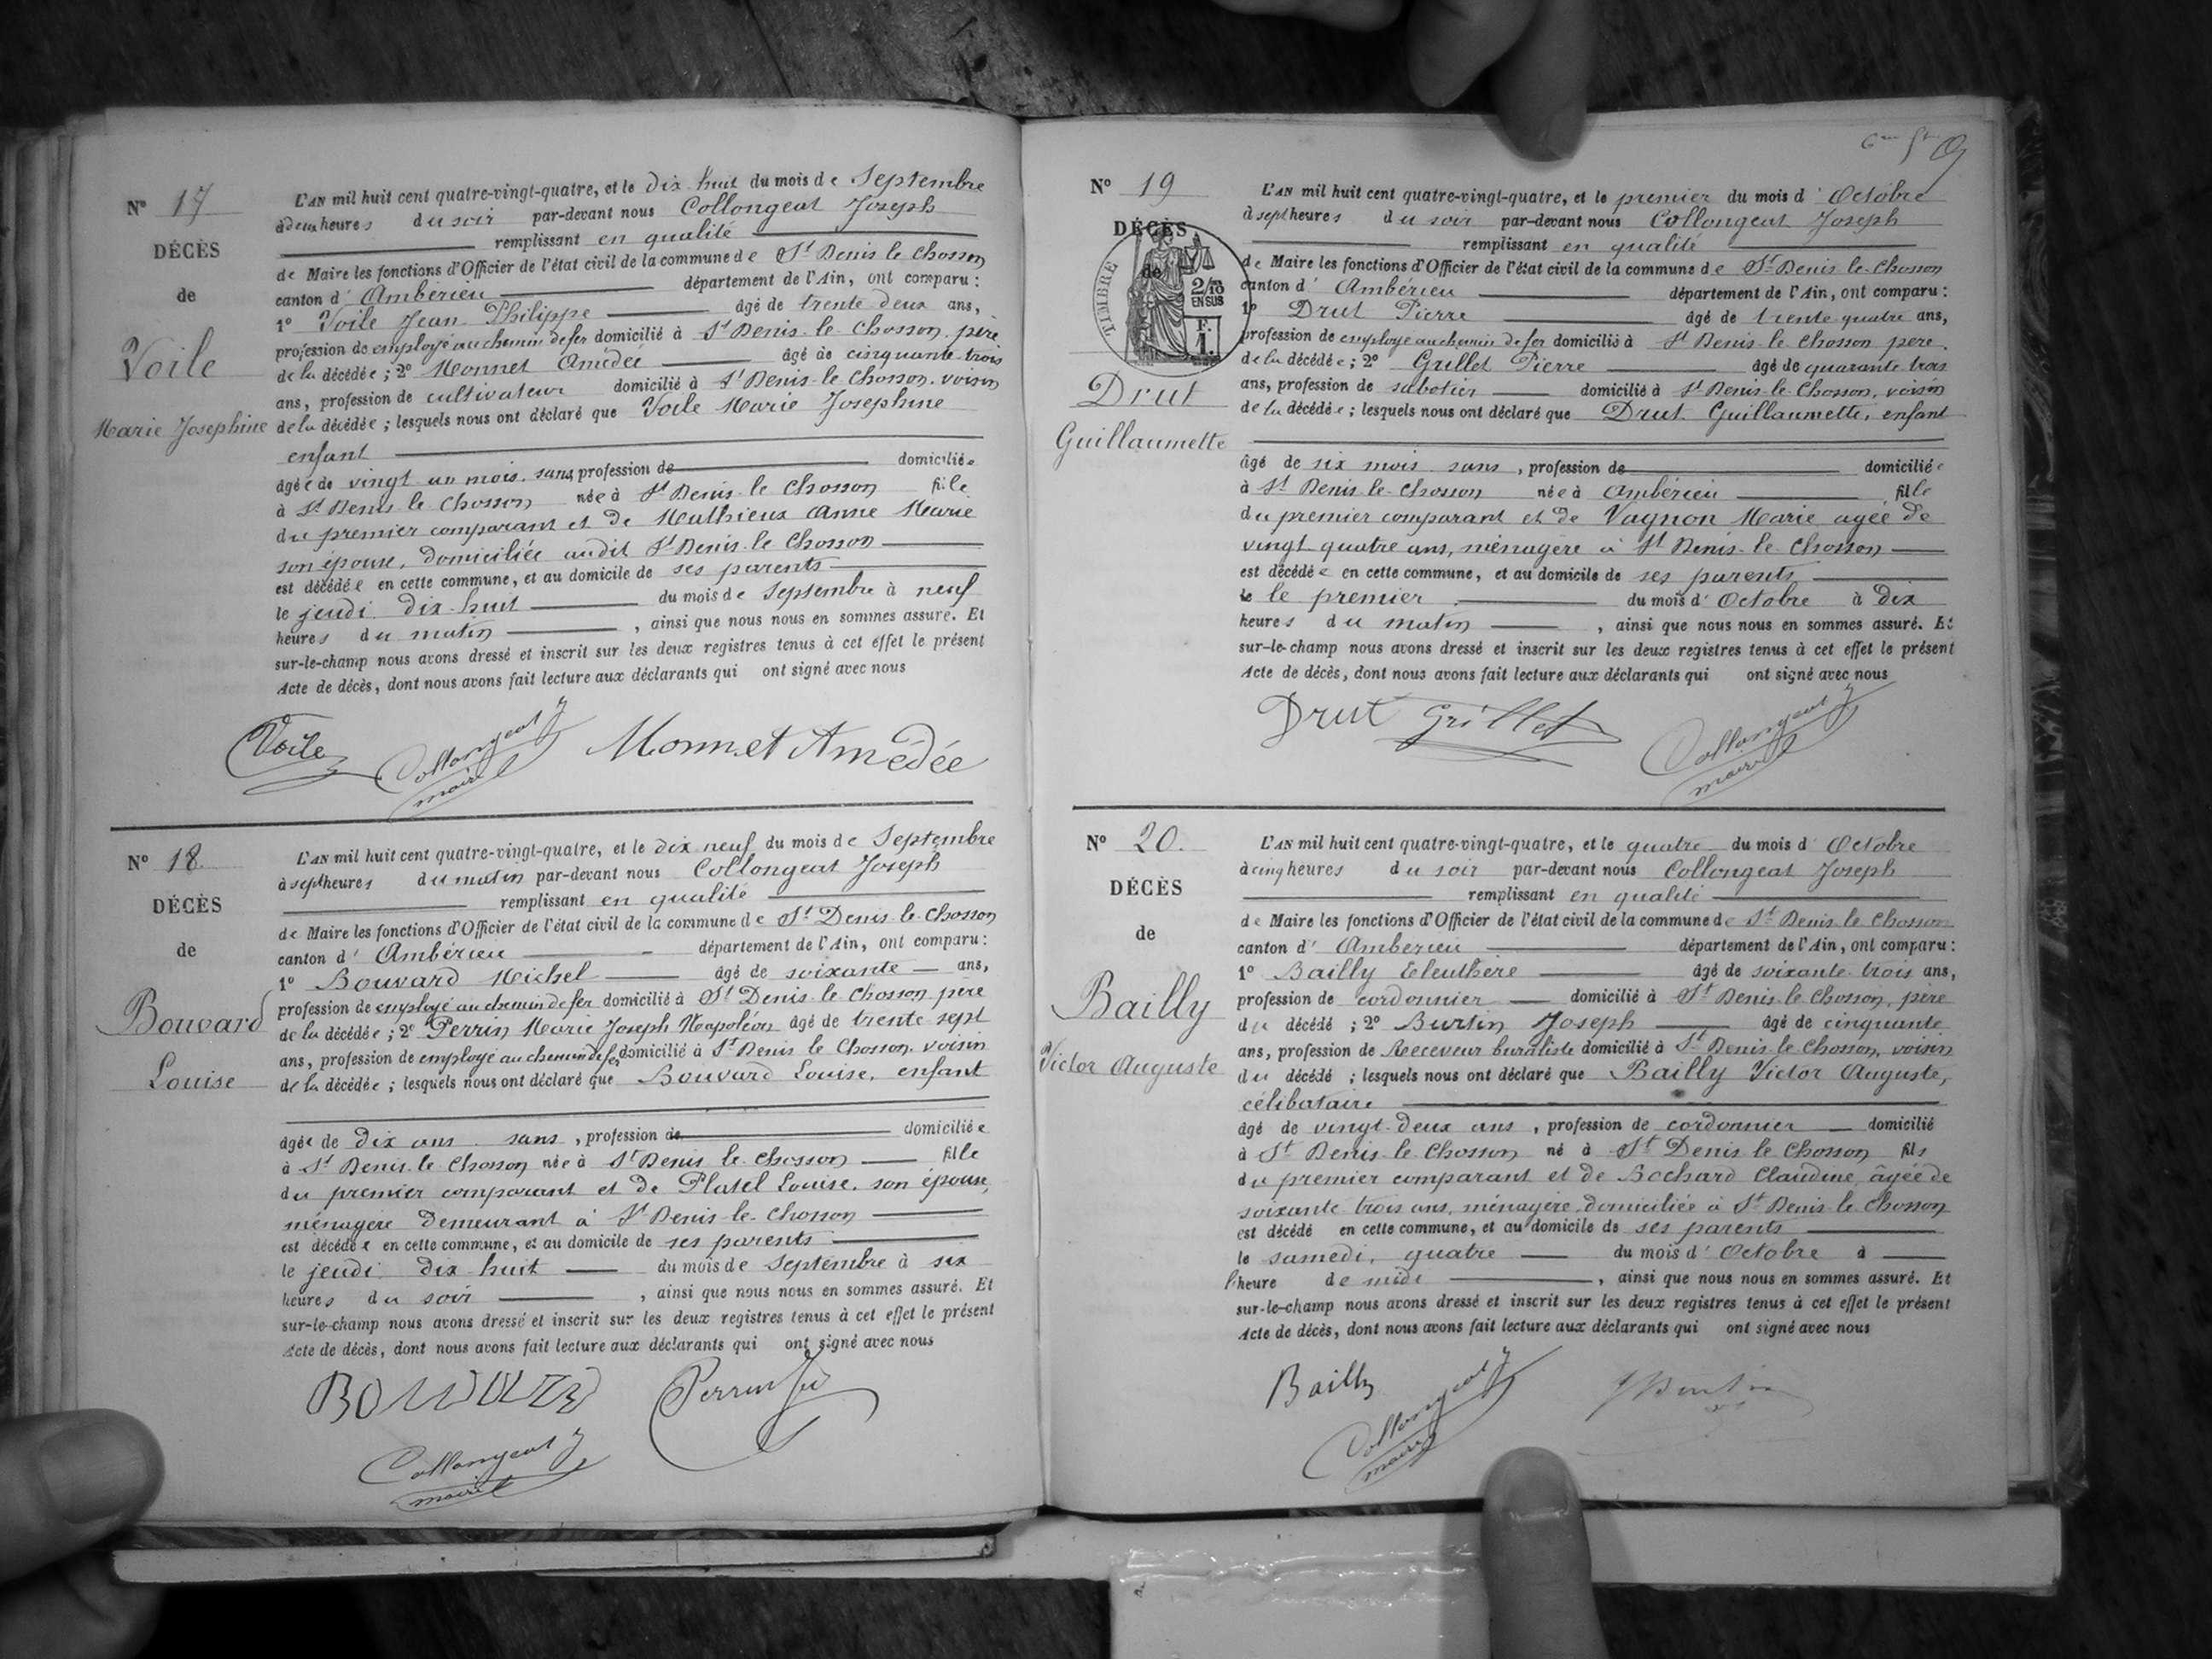 Nº 17
DÉCÈS
de
Voile
Marie Josephine
L'AN mil huit cent quatre-vingt-quatre, et le dix huit du mois de Septembre
à deux heures du soir par-devant nous Collongeat Joseph
remplissant en qualité
de Maire les fonctions d'Officier de l'état civil de la commune de St Denis le Chosson
canton d' Ambérieu département de l'Ain, ont comparu :
1º Voile Jean Philippe âgé de trente deux ans,
profession de employé au chemin de fer domicilié à St Denis-le Chosson, père
de la décédée ; 2º Monnet Amédée âgé de cinquante-trois
ans, profession de cultivateur domicilié à St Denis-le Chosson. voisin
de la décédée ; lesquels nous ont déclaré que Voile Marie Josephine
enfant
âgée de vingt un mois. sans profession de domiciliée
à St Denis le Chosson née à St Denis-le Chosson fille
du premier comparant et de Mathieux Anne Marie
son épouse, domiciliée audit St Denis-le Chosson
est décédée en cette commune, et au domicile de ses parents
le jeudi dix-huit du mois de Septembre à neuf
heures du matin , ainsi que nous nous en sommes assuré. Et
sur-le-champ nous avons dressé et inscrit sur les deux registres tenus à cet effet le présent
Acte de décès, dont nous avons fait lecture aux déclarants qui ont signé avec nous
Voile Collongeat J Monnet Amédée
maire
Nº 18
DÉCÈS
de
Bouvard
Louise
L'AN mil huit cent quatre-vingt-quatre, et le dix neuf du mois de Septembre
à sept heures du matin par-devant nous Collongeat Joseph
remplissant en qualité
de Maire les fonctions d'Officier de l'état civil de la commune de St Denis-le-Chosson
canton d' Ambérieu département de l'Ain, ont comparu :
1º Bouvard Michel âgé de soixante ans,
profession de employé au chemin de fer domicilié à St Denis-le Chosson père
de la décédée ; 2º Perrin Marie Joseph Napoléon âgé de trente sept
ans, profession de employé au chemin de fer domicilié à St Denis le Chosson. voisin
de la décédée ; lesquels nous ont déclaré que Bouvard Louise, enfant
âgée de dix ans. sans , profession de domiciliée
à St Denis-le Chosson née à St Denis le Chosson fille
du premier comparant et de Platel Louise. son épouse,
ménagère demeurant à St Denis-le-Chosson
est décédée en cette commune, et au domicile de ses parents
le jeudi dix huit du mois de Septembre à six
heures du soir , ainsi que nous nous en sommes assuré. Et
sur-le-champ nous avons dressé et inscrit sur les deux registres tenus à cet effet le présent
Acte de décès, dont nous avons fait lecture aux déclarants qui ont signé avec nous
Perrin
Collongeat J
maire
Nº 19
DÉCÈS
de
TIMBRE
2/10
EN SUS
F.
1.
Drut
Guillaumette
L'AN mil huit cent quatre-vingt-quatre, et le premier du mois d' Octobre
à sept heures du soir par-devant nous Collongeat Joseph
remplissant en qualité
de Maire les fonctions d'Officier de l'état civil de la commune de St Denis le-Chosson
canton d' Ambérieu département de l'Ain, ont comparu :
1º Drut Pierre âgé de trente quatre ans,
profession de employé au chemin de fer domicilié à St Denis-le Chosson père.
de la décédée ; 2º Grillet Pierre âgé de quarante trois
ans, profession de sabotier domicilié à St Denis-le-Chosson, voisin
de la décédée ; lesquels nous ont déclaré que Drut Guillaumette, enfant
âgé de six mois sans , profession de domiciliée
à St Denis-le-Chosson née à Ambérieu fille
du premier comparant et de Vagnon Marie agée de
vingt quatre ans, ménagère à St Denis-le-Chosson
est décédée en cette commune, et au domicile de ses parents
le le premier du mois d' Octobre à dix
heures du matin , ainsi que nous nous en sommes assuré. Et
sur-le-champ nous avons dressé et inscrit sur les deux registres tenus à cet effet le présent
Acte de décès, dont nous avons fait lecture aux déclarants qui ont signé avec nous
Drut Grillet Collongeat J
maire
Nº 20.
DÉCÈS
de
Bailly
Victor Auguste
L'AN mil huit cent quatre-vingt-quatre, et le quatre du mois d' Octobre
à cinq heures du soir par-devant nous Collongeat Joseph
remplissant en qualité
de Maire les fonctions d'Officier de l'état civil de la commune de St Denis le Chosson
canton d' Ambérieu département de l'Ain, ont comparu :
1º Bailly Eleuthère âgé de soixante trois ans,
profession de cordonnier domicilié à St Denis-le Chosson, père
du décédé ; 2º Burtin Joseph âgé de cinquante
ans, profession de Receveur buraliste domicilié à St Denis-le Chosson, voisin
du décédé ; lesquels nous ont déclaré que Bailly Victor Auguste,
célibataire
âgé de vingt-deux ans , profession de cordonnier domicilié
à St Denis-le Chosson né à St Denis le Chosson fils
du premier comparant et de Bochard Claudine, âgée de
soixante trois ans, ménagère, domiciliée à St Denis-le Chosson
est décédé en cette commune, et au domicile de ses parents
le samedi, quatre du mois d' Octobre à
l'heure de midi , ainsi que nous nous en sommes assuré. Et
sur-le-champ nous avons dressé et inscrit sur les deux registres tenus à cet effet le présent
Acte de décès, dont nous avons fait lecture aux déclarants qui ont signé avec nous
Bailly Collongeat J J Burtin
maire